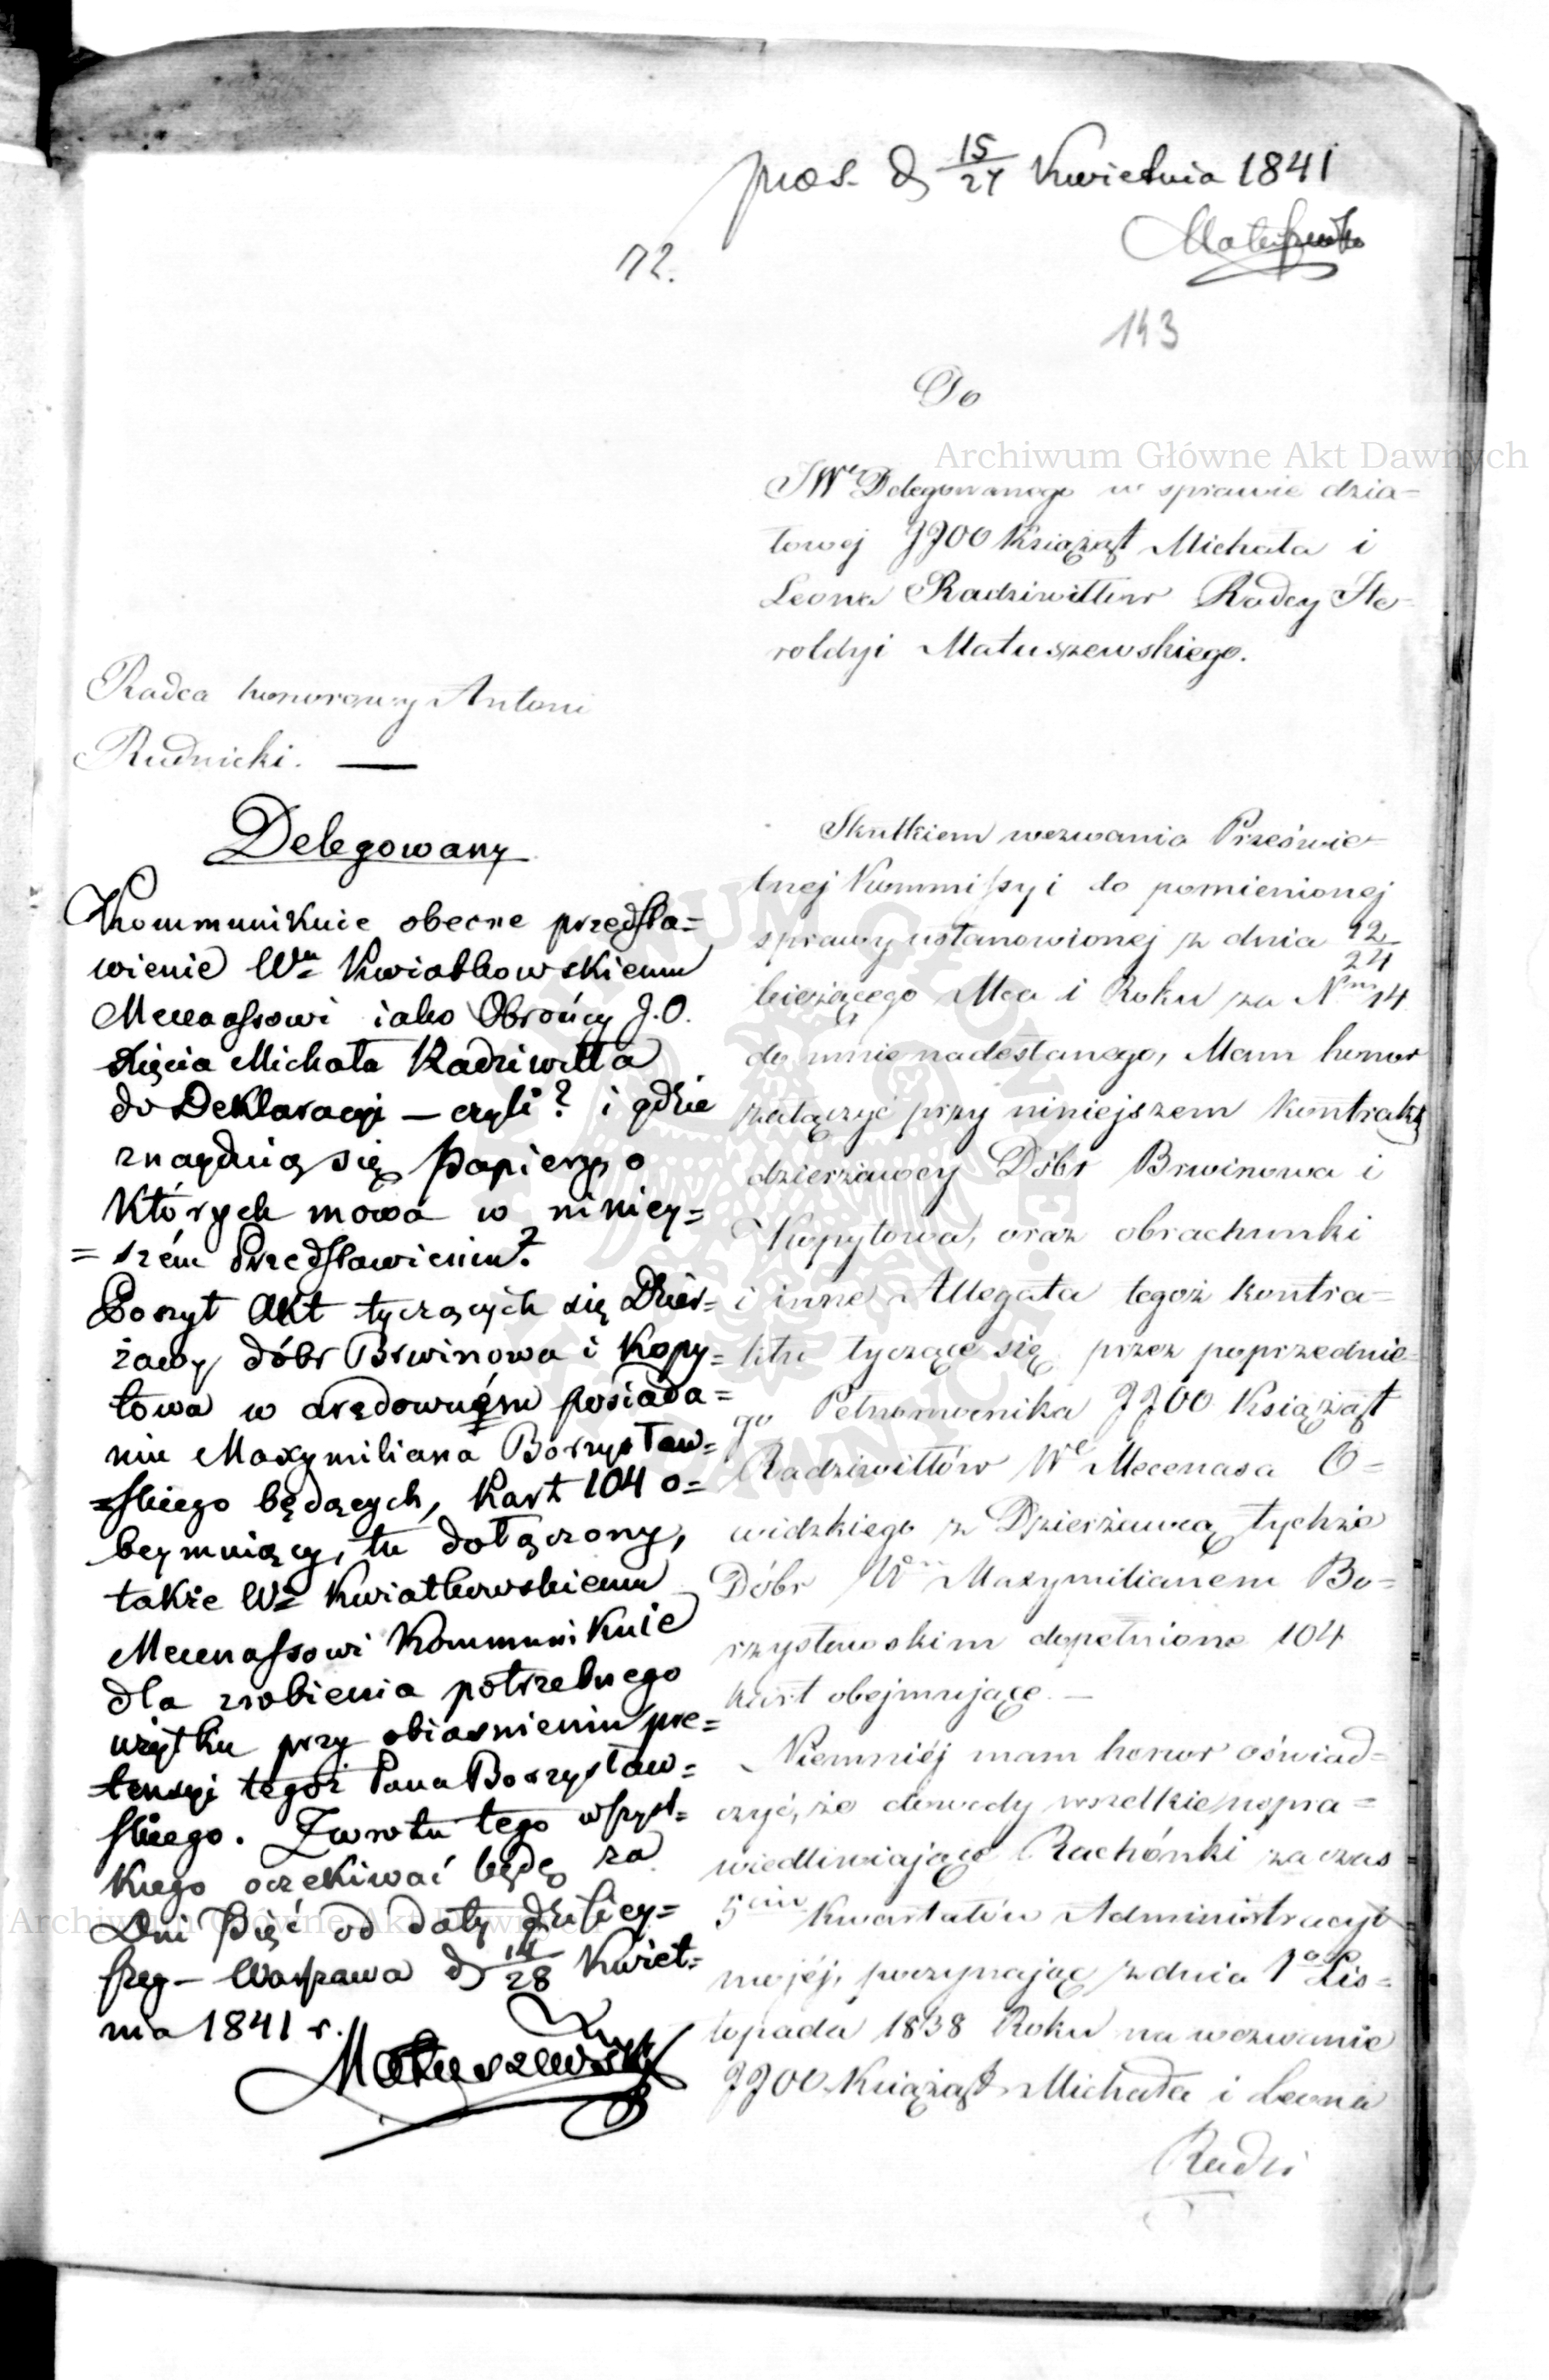 præs. d. 15/27 Kwietnia 1841
Matuszewski
72.
143
Do
JWº Delegowanego w sprawie dzia=
łowej JJOO Książąt Michała i
Leona Radziwiłłów Radcy He=
roldyi Matuszewskiego.
Radca honorowy Antoni
Rudnicki. —
Delegowany
Kommunikuie obecne przedsta=
wienie Wu Kwiatkowskiemu
Mecenassowi iako Obrońcy J.O.
Xięcia Michała Radziwiłła
do Deklaracyi — czyli? i gdzie
znayduią się papiery, o
których mowa w niniey=
=szém Przedstawieniu?
Poszyt Akt tyczących się Dzier=
żawy dóbr Brwinowa i Kopy=
towa w arędownęm posiada=
niu Maxymiliana Borzysław=
=skiego będących, Kart 104 o=
beymuiący, tu dołączony,
także Wu Kwiatkowskiemu
Mecenassowi Kommunikuie
dla zrobienia potrzebnego
użytku przy obiasnieniu pre=
tensyi tegoż Pana Borzysław=
skiego. Zwrotu tego wszyst=
kiego oczekiwać będę za
Dni Pięć od daty dzisiey=
szey — Warszawa d. 16/28 Kwiet=
nia 1841 r.
Matuszewski
Skutkiem wezwania Prześwie=
tnej Kommissyi do pomienionej
sprawy ustanowionej z dnia 12/24
bieżącego Mca i Roku za Nrm 14
do mnie nadesłanego, Mam honor
załączyć przy niniejszem Kontrakt
dzierżawcy Dóbr Brwinowa i
Kopytowa, oraz obrachunki
i inne Allegata tegoż Kontra=
ktu tyczące się przez poprzednie=
go Pełnomocnika JJOO Książąt
Radziwiłłów Wº Mecenasa O=
widzkiego z Dzierżawcą tychże
Dóbr Wm Maxymilianem Bo=
rzysławskim dopełnione 104
kart obejmujące. —
Niemniéj mam honor oświad=
czyć, że dowody wszelkie uspra=
wiedliwiające Rachónki za czas
5ciu Kwartałów Administracyi
mojéj, poczynając z dnia 1º Lis=
topada 1838 Roku na wezwanie
JJOO Książąt Michała i Leona
Radzi
Archiwum Główne Akt Dawnych